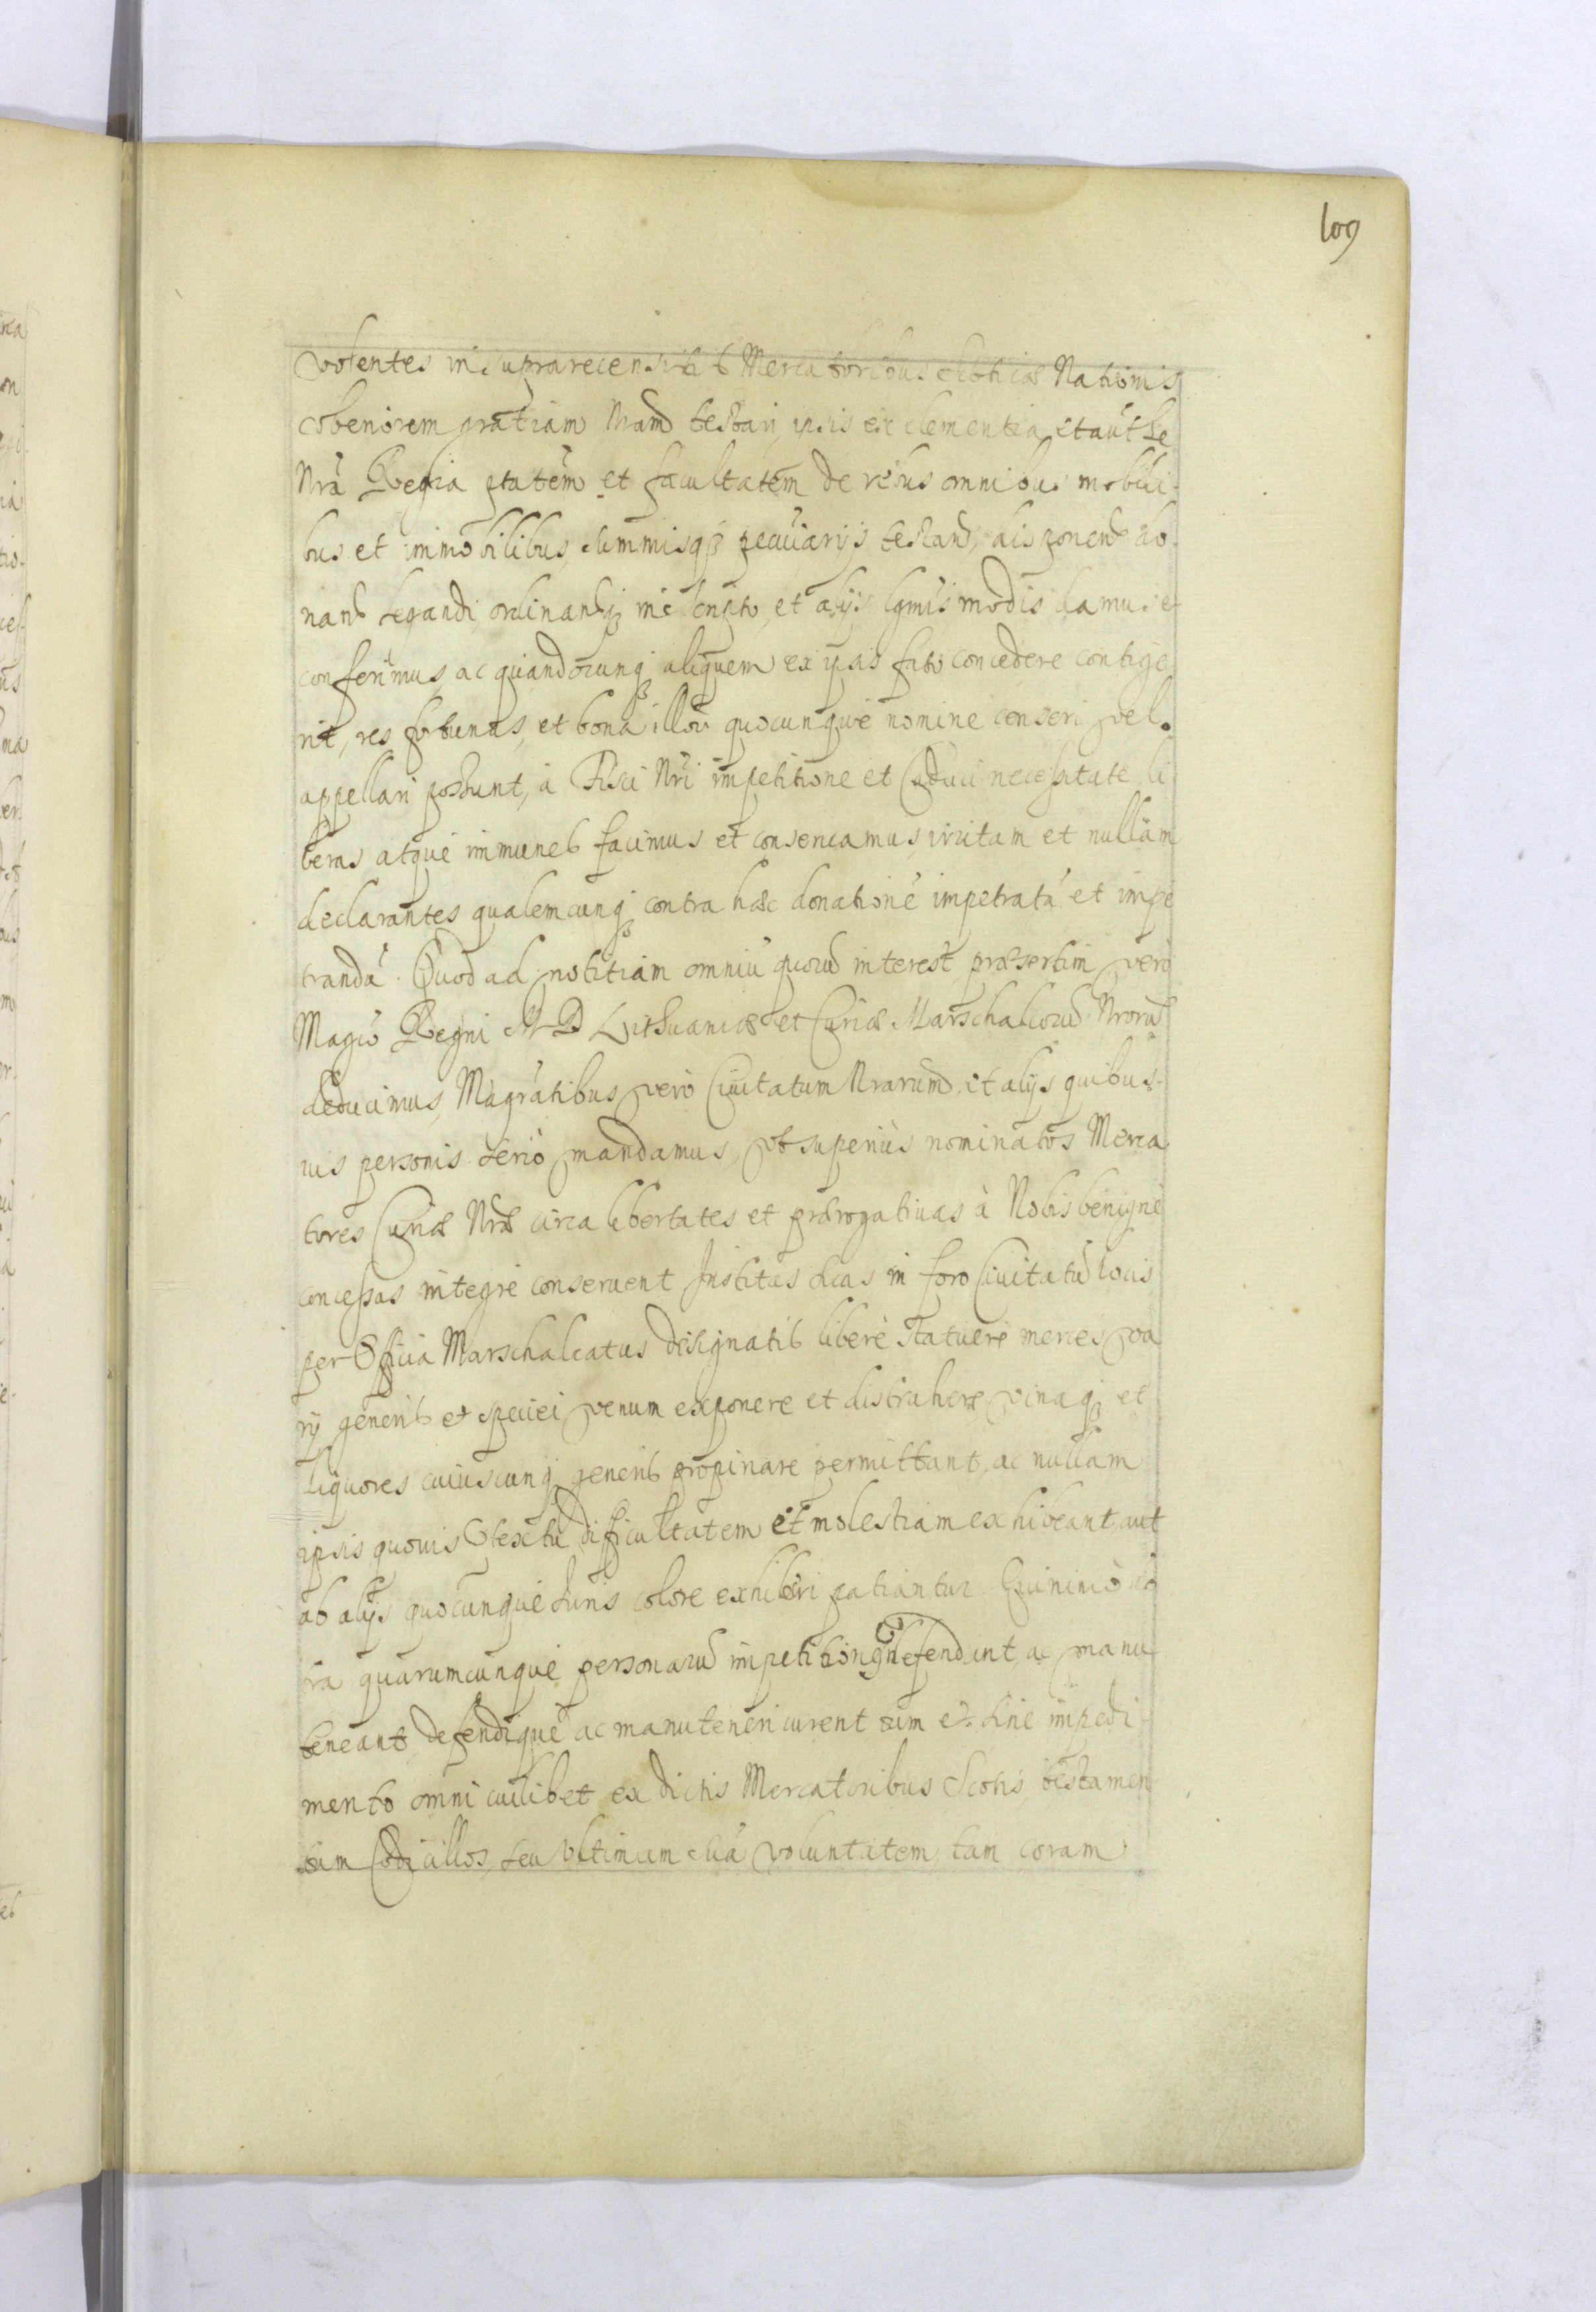 109
volentes in suprarecensitis Mercatoribus Scoticæ Nationis
uberiorem gratiam Nram testari, ipsis ex clementia et authe
Nrã Regia ptatem et facultatem de rebus omnibus mobili-
bus et immobilibus, summisq3 pecuiarijs testand, disponend do-
nand legandi ordinandiq3 in scripto, et alijs lgmis modis damus et
conferimus, ac quandocunq3 aliquem ex ipsis fato concedere contige
rit, res fortunas, et bona illorũ quocunque nomine censeri vel
appellari possunt, à Fisci Nri impetitione et Caduci necessitate li
beras atque immunes facimus et conservamus, irritam et nullam
declarantes qualemcunq3 contra hæc donationẽ impetratã et impe
trandã. Quod ad notitiam omniũ quorũ interest, præsertim vero
Magcõ Regni M D Lithuaniæ et Curiæ Marschalcorũ Nrorũ
deducimus, Magratibus vero Civitatum Nrarum, et alijs quibus-
uis personis serio mandamus, vt superius nominatos Merca
tores Curiæ Nræ circa libertates et prærogatiuas à Nobis benignè
concessas integrè conseruent Institas suas in foro Ciuitatũ locis
per Officia Marschalcatus designatis liberè statuere merces va
rij generis et speciei venum exponere et distrahere vinaq3 et
liquores cuiuscunq3 generis propinare permittant, ac nullam
ipsis quouis ptextu difficultatem et molestiam exhibeant, aut
ab alijs quocunque Iuris colore exhiberi patiantur Quinimò cõ
tra quarumcunque personarũ impetitiones defendant, ac manu
teneant, defendique ac manuteneri curent sim et sine impedi
mento omni cuilibet ex dictis Mercatoribus Scotis testamen
tum Codicillos, seu vltimam suã voluntatem tam coram